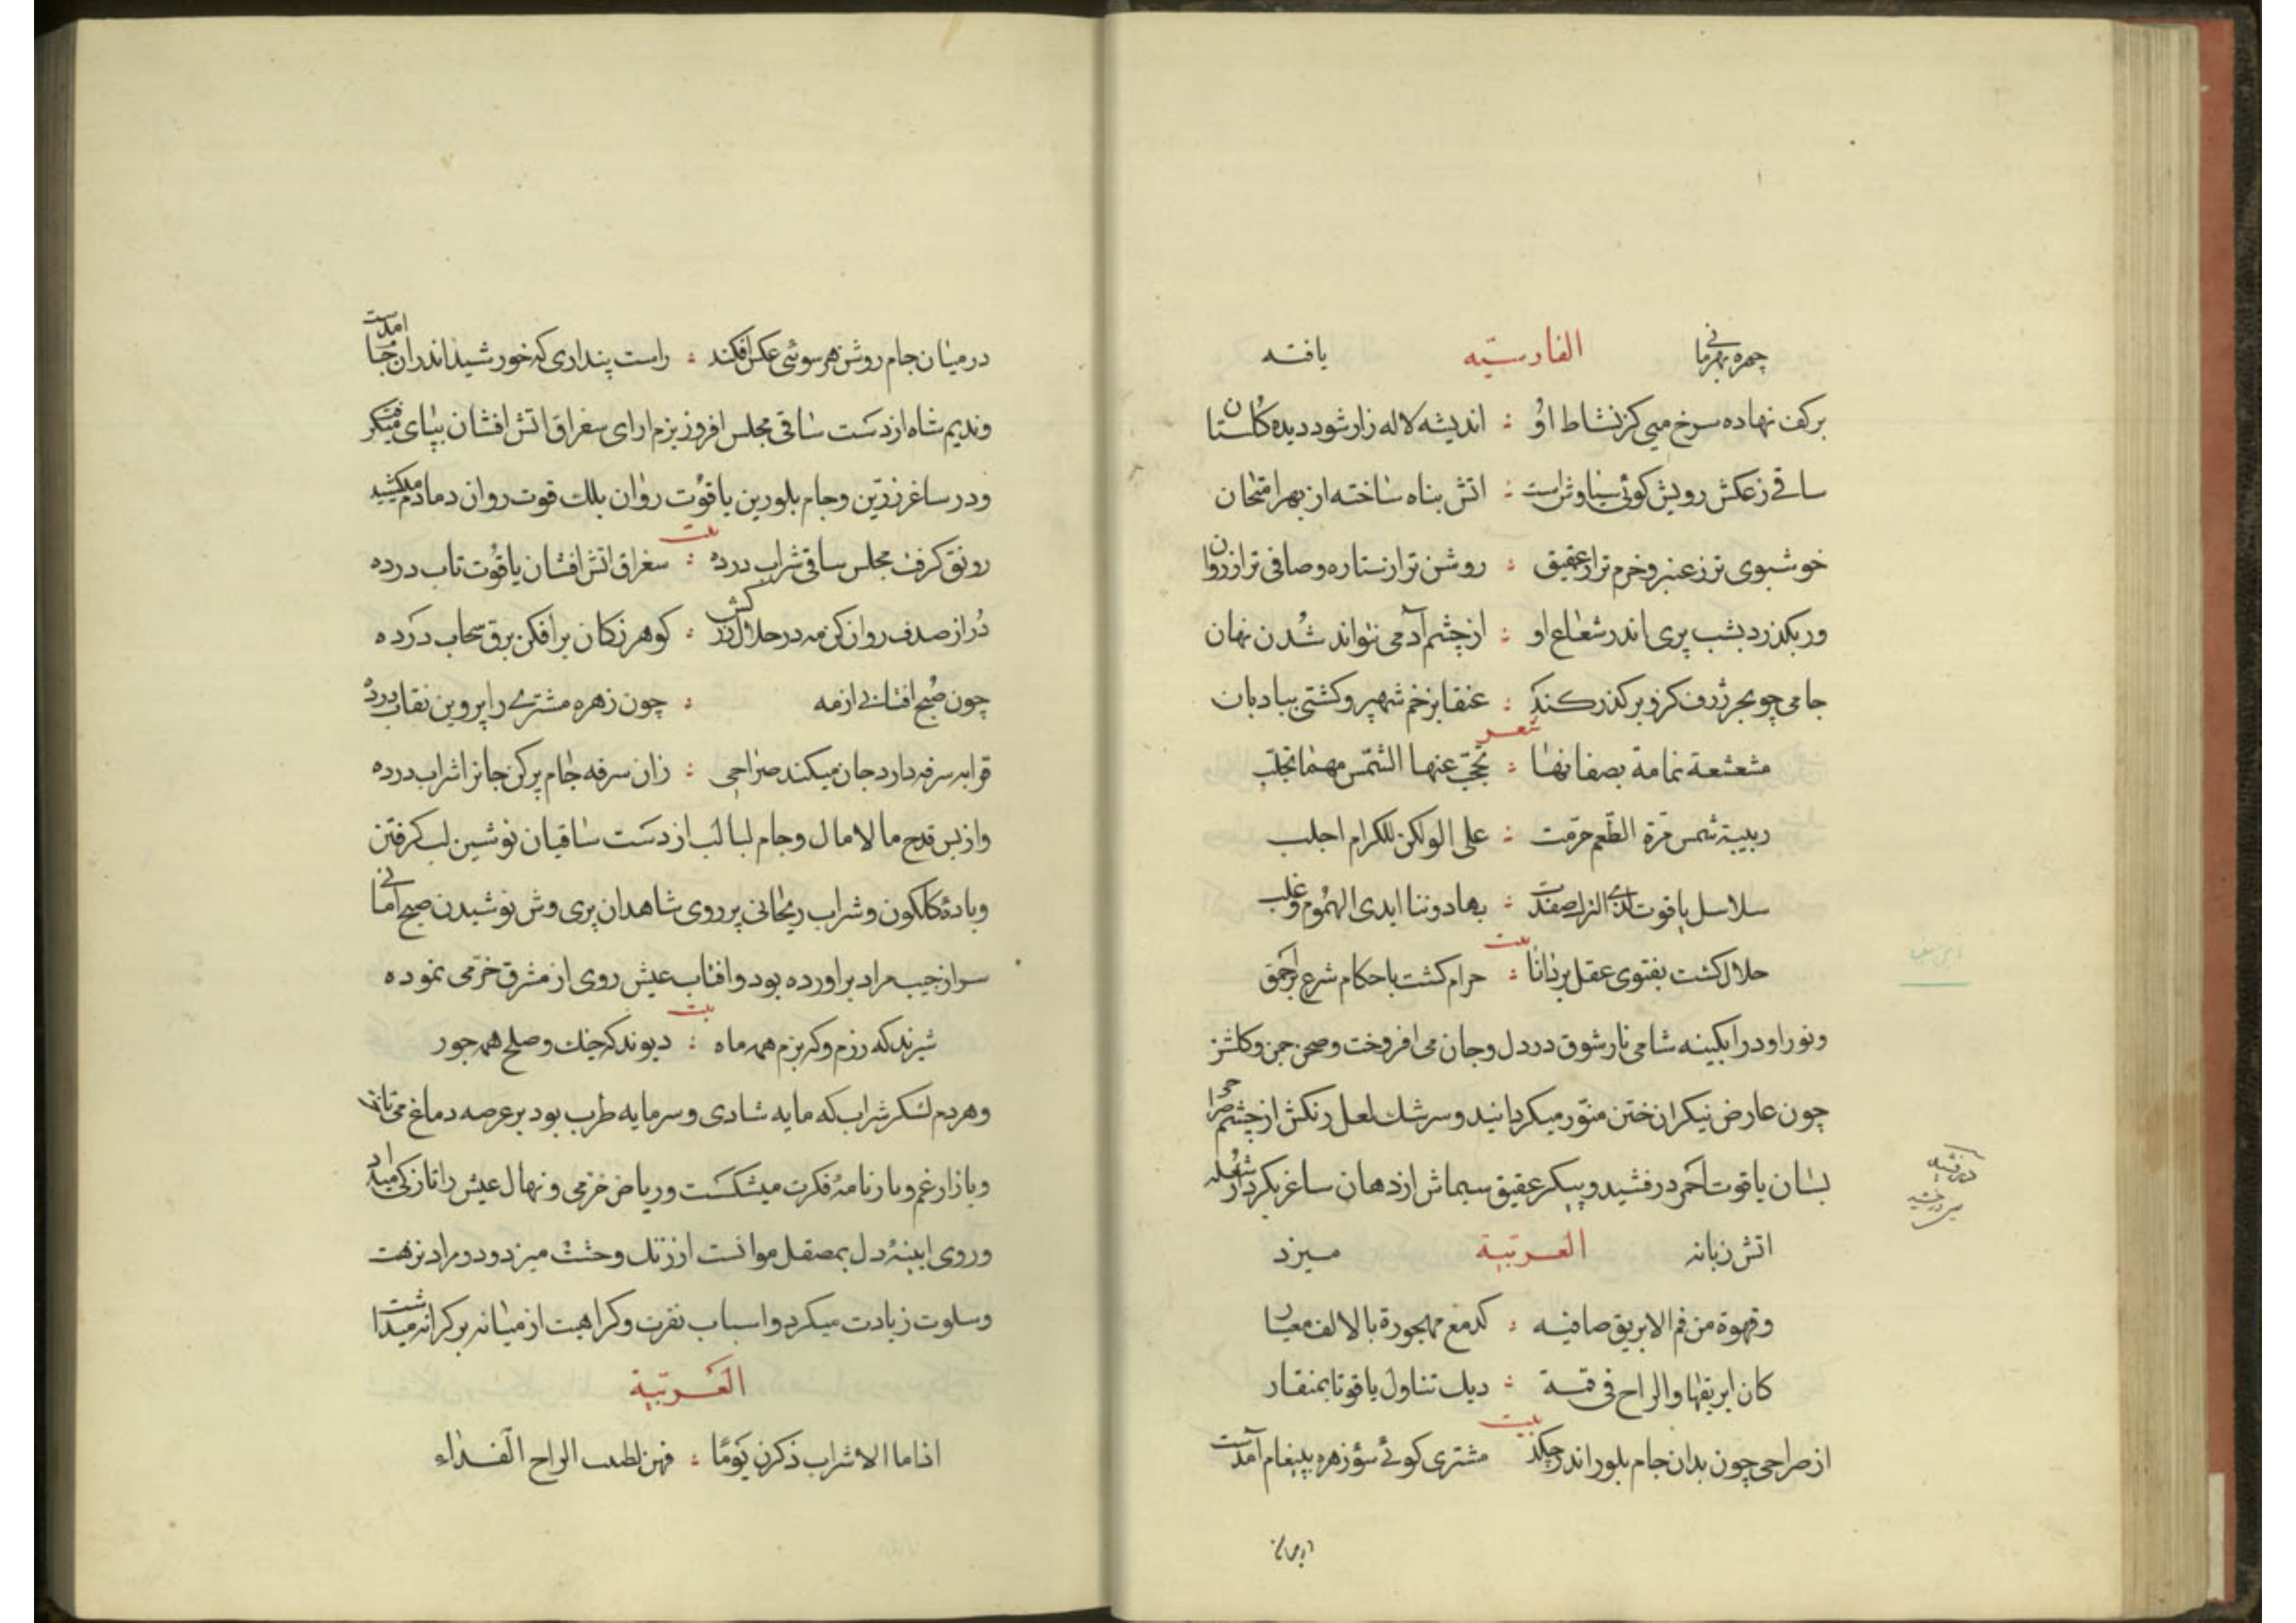 چهره بهرمانی الفارسیّه یافته
برکف نهاده سرخ میی کز نشاط اوُ : اندیشه لاله زار شود دیده کلستان
ساقی ز عکش رویش کوئی سیاوش است : اتش پناه ساخته از بهر امتحان
خوشبوی تر ز عنبر و خرم تر از عقیق : روشن تر از ستاره و صافی تر از روان
ور بکذرد بشب پری اندر شعاع او : از چشم آدمی نتواند شدن نهان
جامی چو بحر ژرف کزو بر کذر کند : عنقا بزخم شهپر و کشتی ببادبان
شعر
مشعشعة نمامة بصفائها : تحجّب عنها الشّمس مهما تجلّب
ربیبة شمس مرّة الطّعم حرّمت : علی الولکن للکرام اجلب
سلاسل یاقوت صفدت : بها دوننا ایدی الهُموم وغلب
بیت
حلال کشت بفتوی عقل بر دانا : حرام کشت باحکام شرع بر احمق
و نور او در ابکینه شامی نار شوق در دل و جان می افروخت و صحن چمن و کلشن
چون عارض نیکران ختن منوّر میکردانید و سرشك لعل رنکش از چشم صراحی
بسان یاقوت احمر درفشید و پیکر عقیق سیماش از دهان ساغر بکردار شعله
اتش زبانه العربیّة میزد
وقهوة من فم الابریق صافیه : کدمع مهجورة بالالف معیار
کان ابریقها والراح فی فمه : دیك تناول یاقوتا بمنقار
بیت
از صراحی چون بدان جام بلور اندر چکد مشتری کوئی سؤ زهره بپیغام آمدست
در میان جام روشن هر سوئی عکس افکند : راست پنداری که خورشید اندران جا امدست
و ندیم شاه از دست ساقی مجلس افروز بزم ارای سغراق اتش افشان بپای میکرفت
و در ساغر زرّین و جام بلورین یاقوُت روان بلك قوت روان دمادم میکشید
بیت
رونق کرفت مجلس ساقی شراب درده : سغراق اتش افشان یاقوُت ناب درده
دُر از صدف روان کن مه در حلال زر کش : کوهر ز کان برافکن برق سحاب درده
چون صُبح افتابی از مه : چون زهره مشتری را پروین نقاب درده
قرابه سرفه دارد جان میکند صراحی : زان سرفه جام پر کن جانرا شراب درده
و از بس قدح مالامال و جام لبالب از دست ساقیان نوشین لب کرفتن
و بادهٔ کلکون و شراب ریحانی بر روی شاهدان پری وش نوشیدن صبح امانی
سر از جیب مراد براورده بود و افتاب عیش روی از مشرق خرّمی نموده
بیت
شیرند که رزم و که بزم همه ماه : دیوند که جنك و صلح همه حور
و هر دم لشکر شراب که مایه شادی و سرمایه طرب بود بر عرصه دماغ می تاخت
و بازار غم و بارنامهٔ فکرت میشکست و ریاض خرّمی و نهال عیش را تازکی میداد
و روی اینهٔ دل بمصقل موانست از زنك وحشت میزدود و مراد نزهت
و سلوت زیادت میکرد و اسباب نفرت و کراهیت از میانه بر کرانه میداشت
العَربیّة
اذا ما الاشراب ذکرن یَومًا : فهن لطیب الراح الفداء